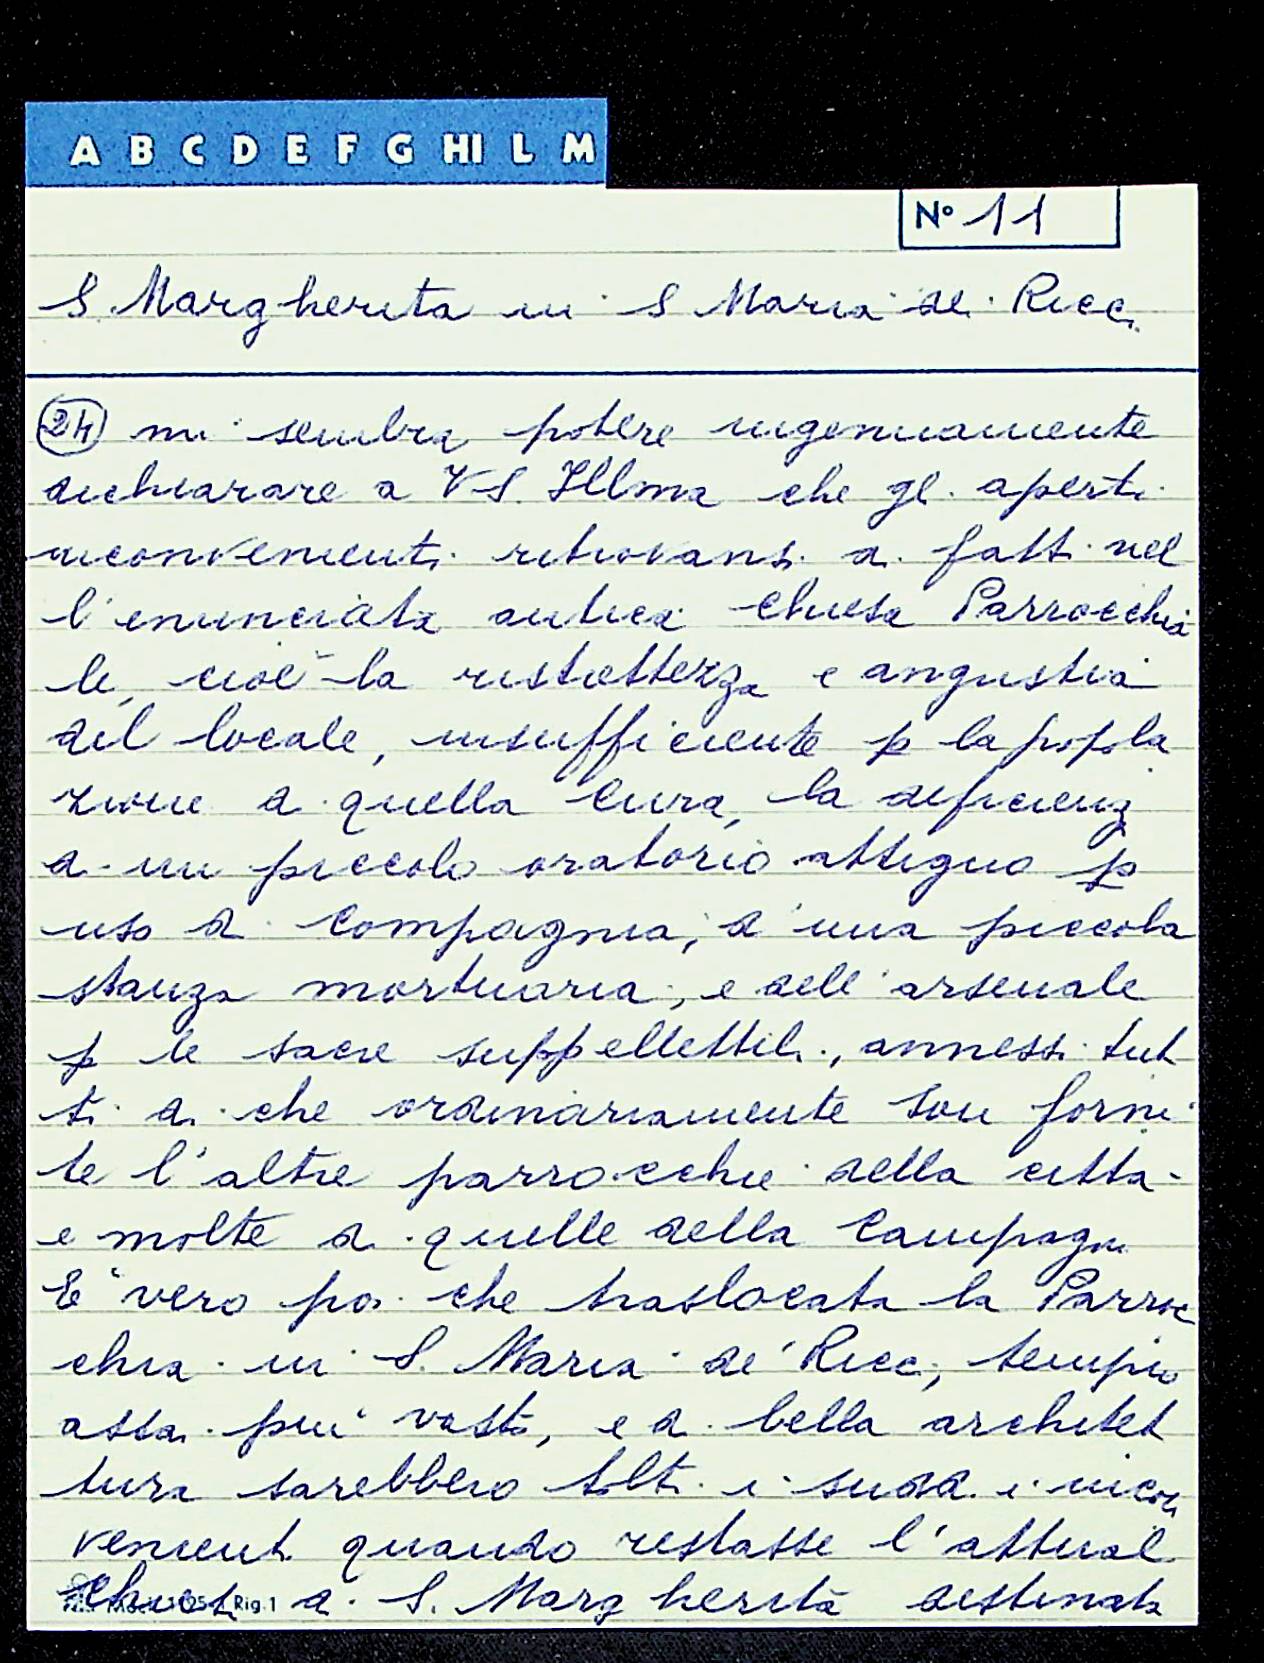 A B C D E F G HI L M
N° 11
S. Margherita in S Maria de Ricci
(24) mi sembra potere ingenuamente
dichiarare a VS. Illma che gli aperti
inconvenienti ritrovansi di fatti nel
l'enunciata antica chiesa Parrocchia
le, cioè la ristrettezza e angustia
del locale, insufficiente p la popola
zione di quella Cura, la deficienz
di un piccolo oratorio attiguo p
uso di Compagnia, d'una piccola
stanza mortuaria, e dell'arsenale
p le sacre suppellettili, annessi tut
ti di che ordinariamente son forni
te l'altre parrocchie della citta
e molte di quelle della Campagna
E' vero poi che traslocata la Parroc
chia in S. Maria de' Ricci, tempio
assai piu' vasto, e di bella architet
tura sarebbero tolti i sudd. i incon
venienti quando restasse l'attual
chiesa di S. Margherita destinata
Rig. 1